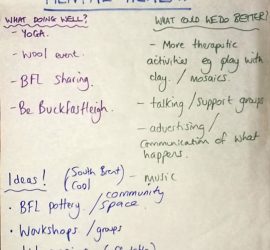 MENTAL HEALTH
WHAT DOING WELL?
- YOGA.
- Wool event.
- BFL sharing.
- Be Buckfastleigh.
WHAT COULD WE DO BETTER?
- More theraputic
activities eg play with
clay. / mosaics
- talking/support groups
- advertising/
communication of what
happens.
- music
Ideas! (South Brent)
Cool
• BFL pottery / community
space
• Workshops / groups